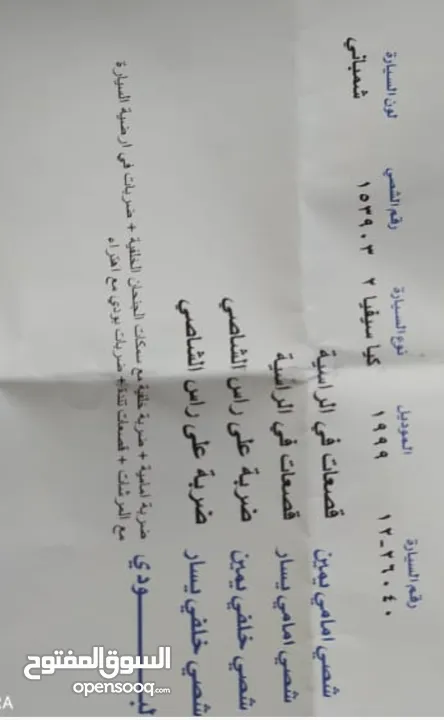 رقم السيارة الموديل نوع السيارة رقم الشصي لون السيارة
١٢-٢٦٠٤٠ ١٩٩٩ كيا سيفيا ٢ ١٥٣٩٠٣ شمباني
شصي امامي يمين قصعات في الراسية
شصي امامي يسار قصعات في الراسية
شصي خلفي يمين ضربة على راس الشاصي
شصي خلفي يسار ضربة على راس الشاصي
البـــــودي ضربة امامية + ضربة خلفية مع سكات الجنحان الخلفية + ضربات في ارضية السيارة
مع المرشات + قصعات تندة + ضربات بودي مع اهتراء
السوق المفتوح
opensooq.com
RA